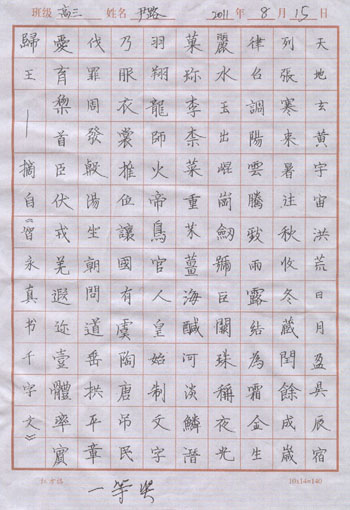 班级 高三 姓名 尹路 2011年8月15日
天地玄黄宇宙洪荒日月盈昃辰宿
列張寒来暑往秋收冬藏閏餘成歲
律吕調陽雲騰致雨露結為霜金生
麗水玉出崐崗劒號巨闕珠稱夜光
菓珎李柰菜重芥薑海醎河淡鱗潛
羽翔龍師火帝鳥官人皇始制文字
乃服衣裳推位讓國有虞陶唐吊民
伐罪周發殷湯坐朝問道垂拱平章
愛育黎首臣伏戎羌遐迩壹體率賓
歸王——摘自《智永真书千字文》
一等奖